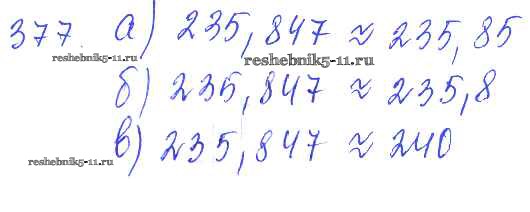 377. а) 235,847 ≈ 235,85
reshebnik5-11.ru reshebnik5-11.ru
б) 235,847 ≈ 235,8
в) 235,847 ≈ 240
reshebnik5-11.ru